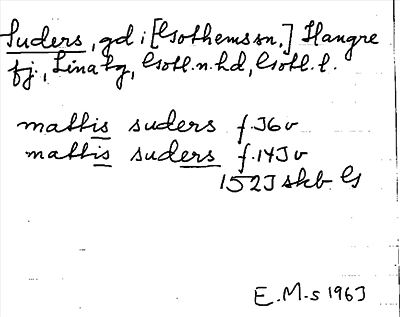 Suders, gd i [Gothems sn,] Hangre
fj., Lina tg, Gotl.n.hd, Gotl. l.
mattis suders f.36v
mattis suders f.143v
1523 skb Gs
E.M-s 1963